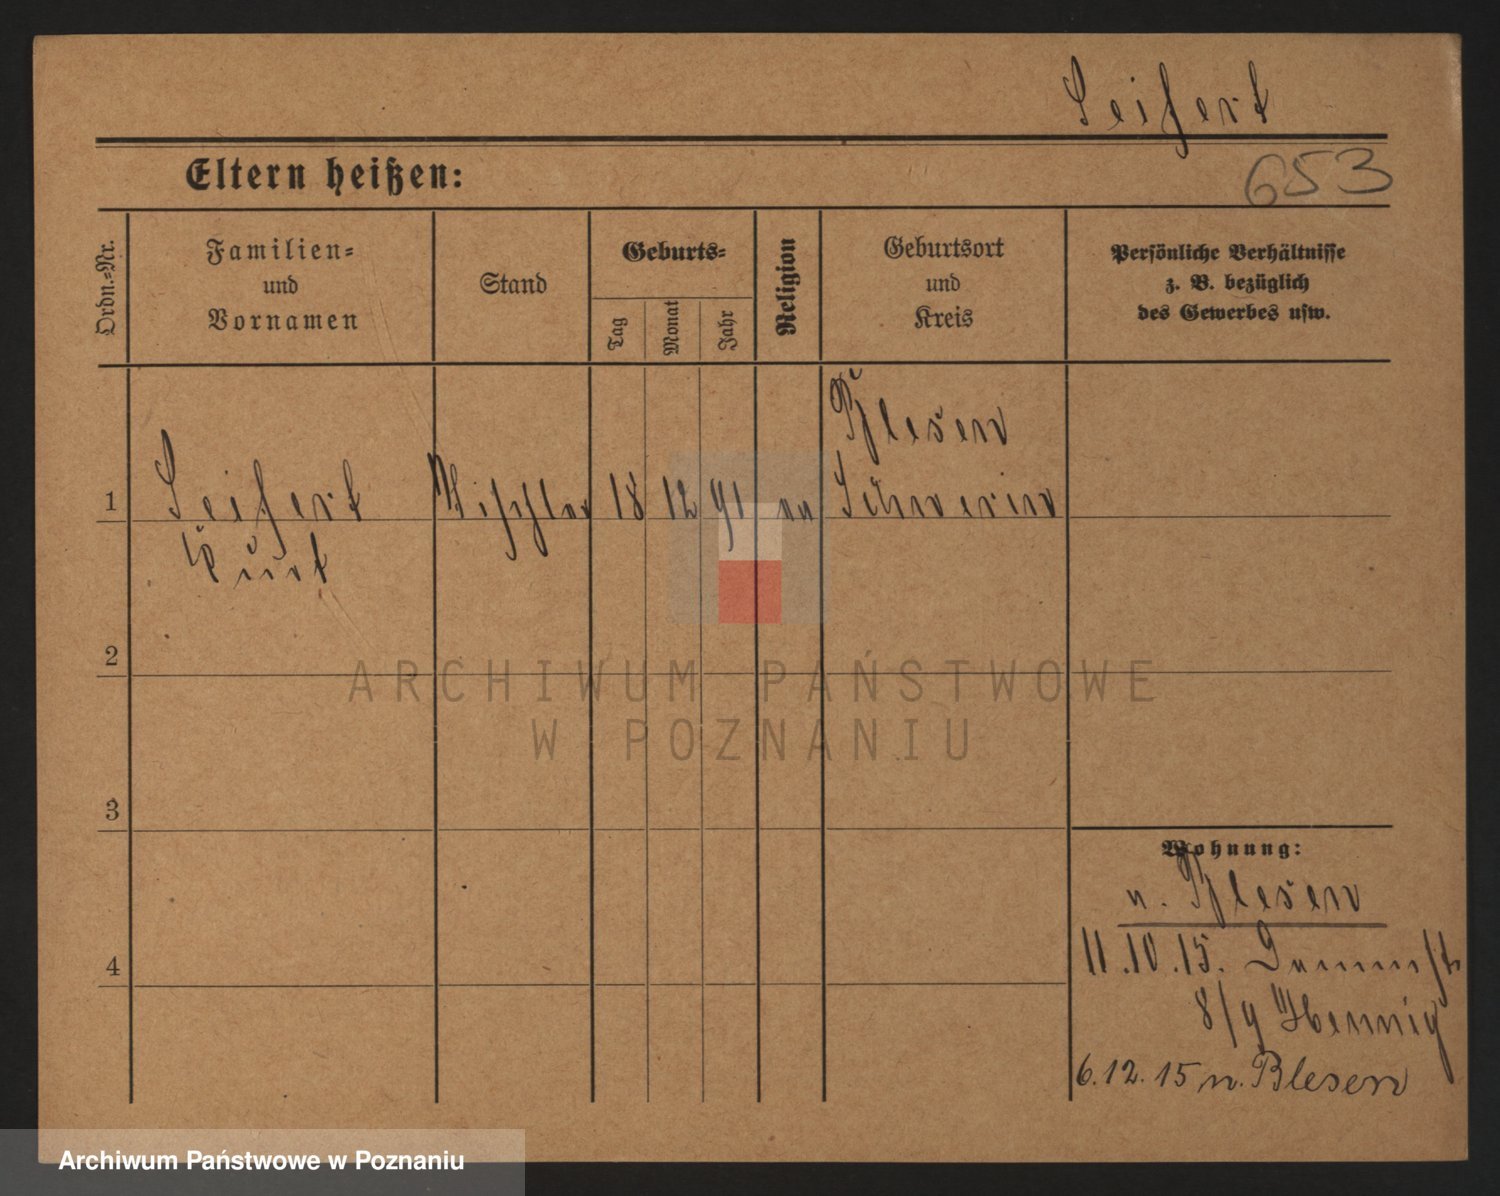 Seifert
653
Eltern heißen:
Ordn.-Nr.
Familien-
und
Vornamen
Stand
Geburts-
Tag
Monat
Jahr
Religion
Geburtsort
und
Kreis
Persönliche Verhältnisse
z. B. bezüglich
des Gewerbes usw.
1
Seifert
Kurt
Tischler
18
12
91
Blesen
Schwerin
2
ARCHIWUM PAŃSTWOWE
W POZNANIU
3
4
Wohnung:
n. Blesen
11.10.15.
8/9 Hennig
6.12.15 n. Blesen
Archiwum Państwowe w Poznaniu